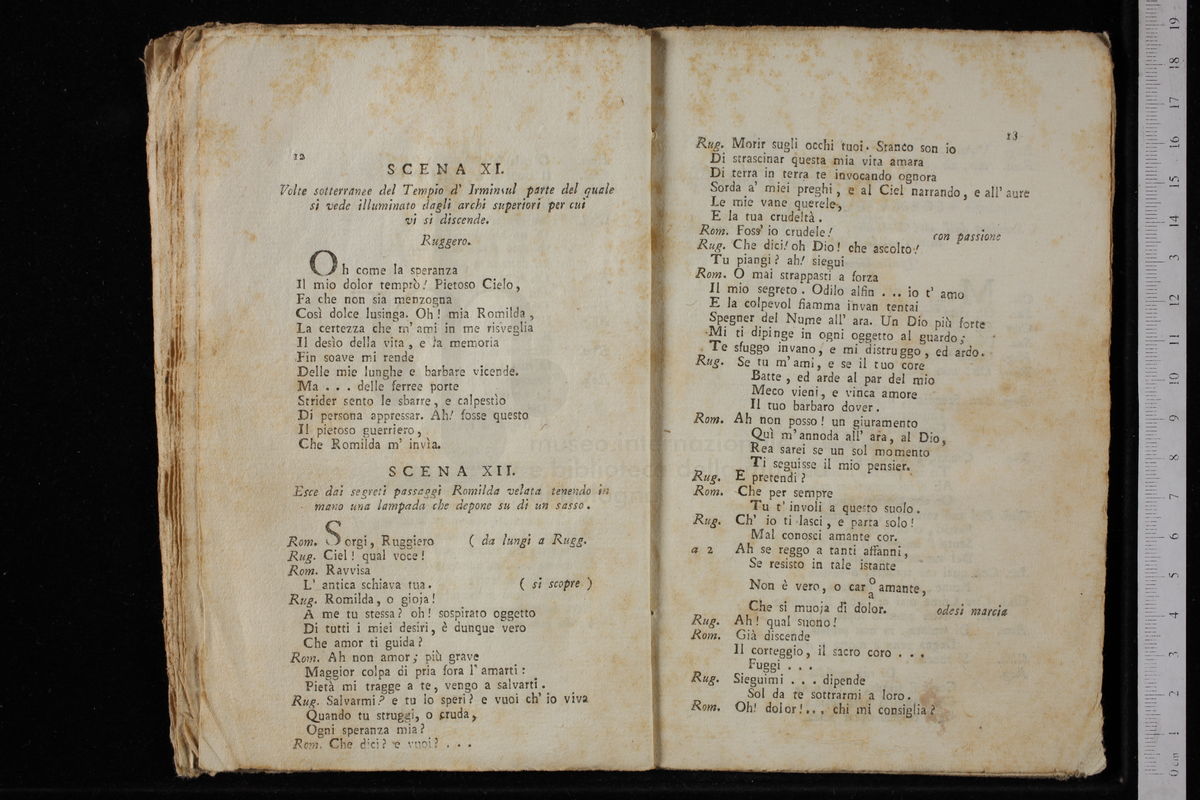 12
SCENA XI.
Volte sotterranee del Tempio d' Irminsul parte del quale
si vede illuminato dagli archi superiori per cui
vi si discende.
Ruggero.
Oh come la speranza
Il mio dolor temprò! Pietoso Cielo,
Fa che non sia menzogna
Così dolce lusinga. Oh! mia Romilda,
La certezza che m' ami in me risveglia
Il desìo della vita, e la memoria
Fin soave mi rende
Delle mie lunghe e barbare vicende.
Ma . . . delle ferree porte
Strider sento le sbarre, e calpestìo
Di persona appressar. Ah! fosse questo
Il pietoso guerriero,
Che Romilda m' invìa.
SCENA XII.
Esce dai segreti passaggi Romilda velata tenendo in
mano una lampada che depone su di un sasso.
Rom. Sorgi, Ruggiero ( da lungi a Rugg.
Rug. Ciel! qual voce!
Rom. Ravvisa
L' antica schiava tua. ( si scopre )
Rug. Romilda, o gioja!
A me tu stessa? oh! sospirato oggetto
Di tutti i miei desiri, è dunque vero
Che amor ti guida?
Rom. Ah non amor; più grave
Maggior colpa di pria fora l' amarti:
Pietà mi tragge a te, vengo a salvarti.
Rug. Salvarmi? e tu lo speri? e vuoi ch' io viva
Quando tu struggi, o cruda,
Ogni speranza mia?
Rom. Che dici? e vuoi? . . .
13
Rug. Morir sugli occhi tuoi. Stanco son io
Di strascinar questa mia vita amara
Di terra in terra te invocando ognora
Sorda a' miei preghi, e al Ciel narrando, e all' aure
Le mie vane querele,
E la tua crudeltà.
Rom. Foss' io crudele!
Rug. Che dici! oh Dio! che ascolto! con passione
Tu piangi? ah! siegui
Rom. O mai strappasti a forza
Il mio segreto. Odilo alfin . .. io t' amo
E la colpevol fiamma invan tentai
Spegner del Nume all' ara. Un Dio più forte
Mi ti dipinge in ogni oggetto al guardo;
Te sfuggo invano, e mi distruggo, ed ardo.
Rug. Se tu m'ami, e se il tuo core
Batte, ed arde al par del mio
Meco vieni, e vinca amore
Il tuo barbaro dover.
Rom. Ah non posso! un giuramento
Quì m'annoda all' ara, al Dio,
Rea sarei se un sol momento
Ti seguisse il mio pensier.
Rug. E pretendi?
Rom. Che per sempre
Tu t' involi a questo suolo.
Rug. Ch' io ti lasci, e parta solo!
Mal conosci amante cor.
a 2 Ah se reggo a tanti affanni,
Se resisto in tale istante
Non è vero, o car o a amante,
Che si muoja di dolor. odesi marcia
Rug. Ah! qual suono!
Rom. Già discende
Il corteggio, il sacro coro . . .
Fuggi . . .
Rug. Sieguimi . . . dipende
Sol da te sottrarmi a loro.
Rom. Oh! dolor!... chi mi consiglia?
museo internazion
e biblioteca della
0 cm 1 2 3 4 5 6 7 8 9 10 11 12 13 14 15 16 17 18 19